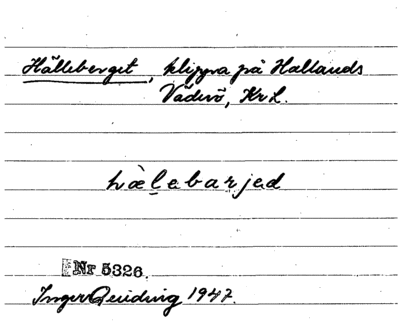 Hälleberget, klippa på Hallands
Väderö, Kr L.
hæ̀lebarjed
Nr 5326.
Inger 1947.